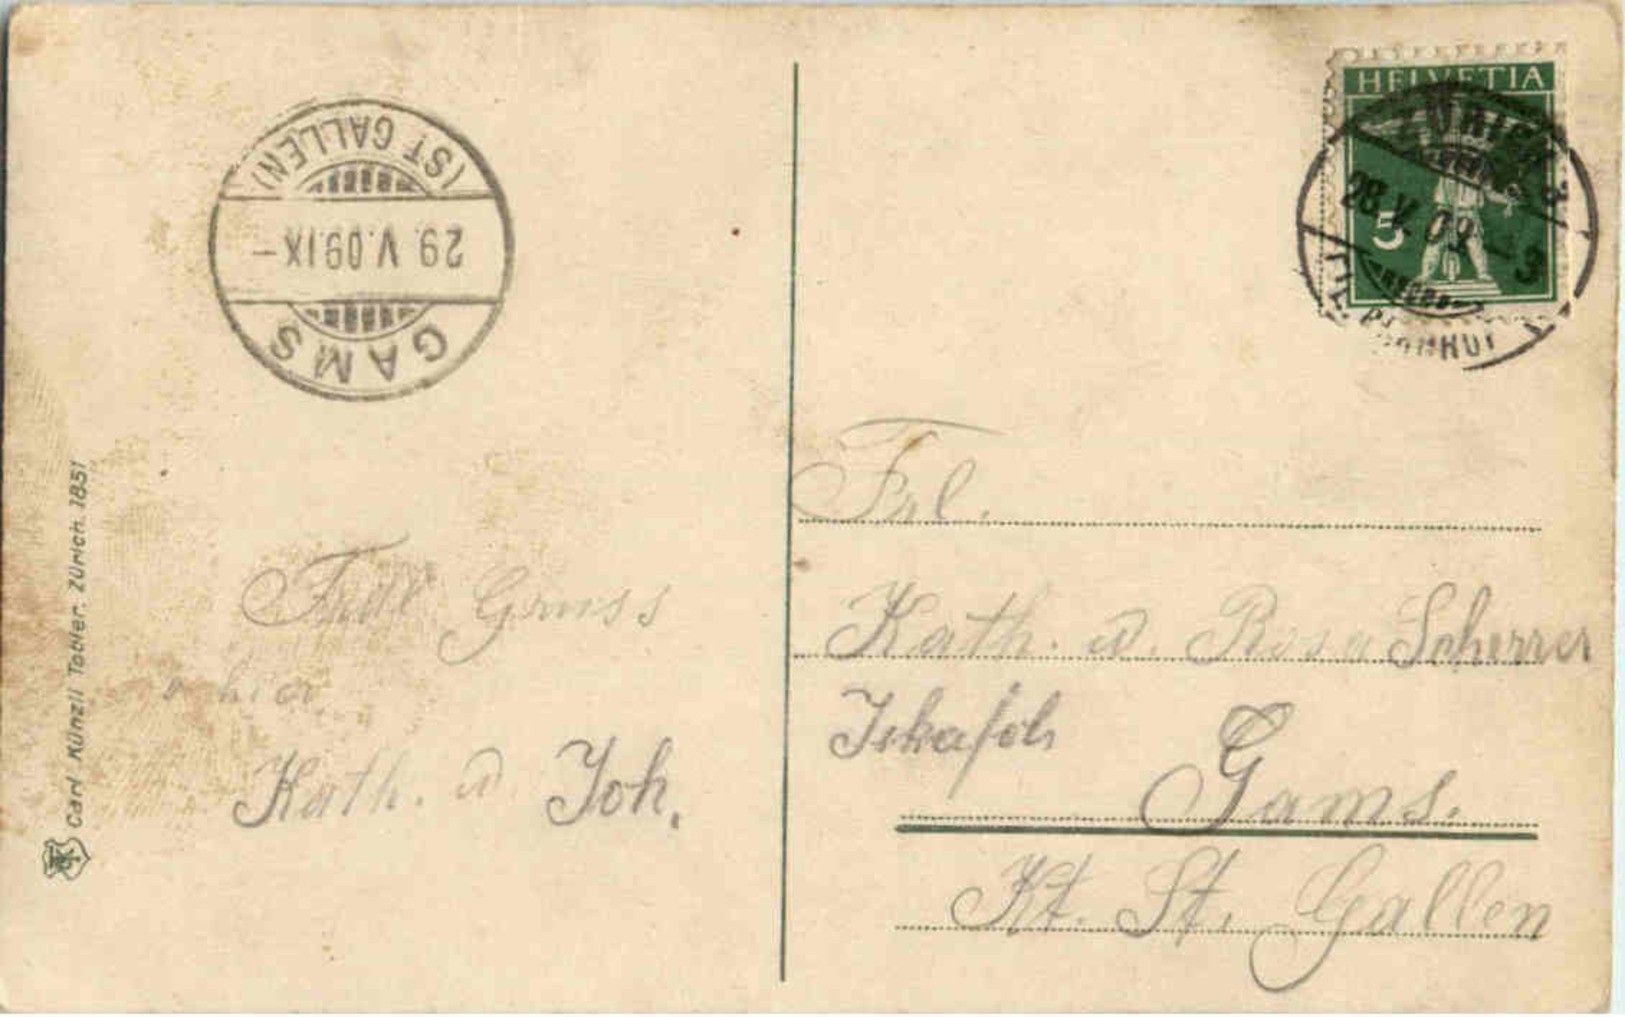 (ST GALLEN)
29. V. 09. IX –
GAMS
HELVETIA
5
ZÜRICH
28. V. 09
Carl Künzli Tobler, Zürich. 1851
Gruss
Kath. u Joh.
Frl.
Kath. u. Rosa Scherrer
Gams.
Kt. St. Gallen